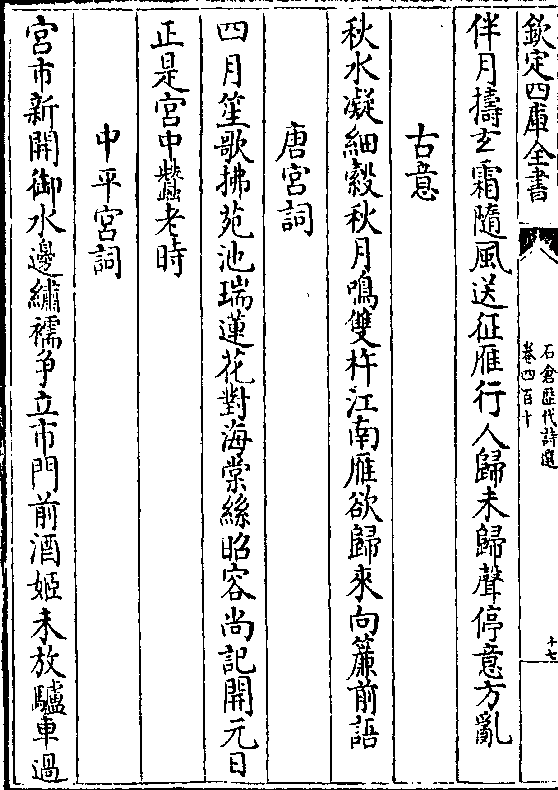 欽定四庫全書
石倉歴代詩選
卷四百十
十七
伴月擣玄霜隨風送征雁行人歸未歸聲停意方亂
古意
秋水凝細縠秋月鳴雙杵江南雁欲歸來向簾前語
唐宮詞
四月笙歌拂苑池瑞蓮花對海棠絲昭容尚記開元日
正是宮中蠶老時
中平宮詞
宮市新開御水邊繡襦争立市門前酒姬未放驢車過